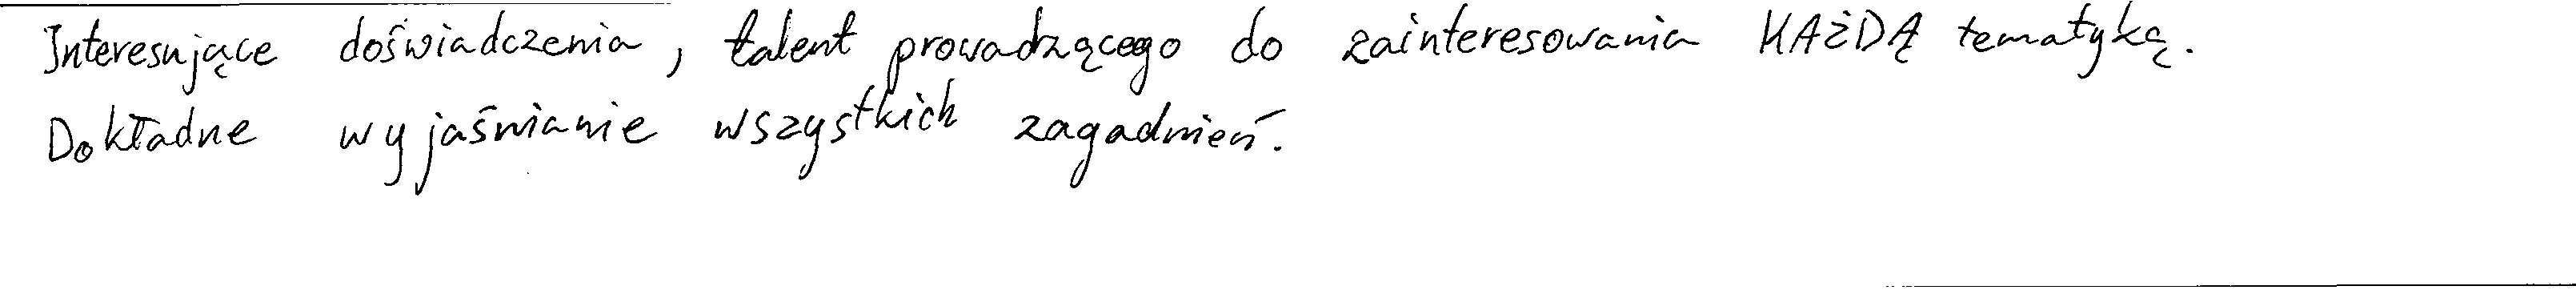 Interesujące doświadczenia, talent prowadzącego do zainteresowania KAŻDĄ tematyką.
Dokładne wyjaśnianie wszystkich zagadnień.